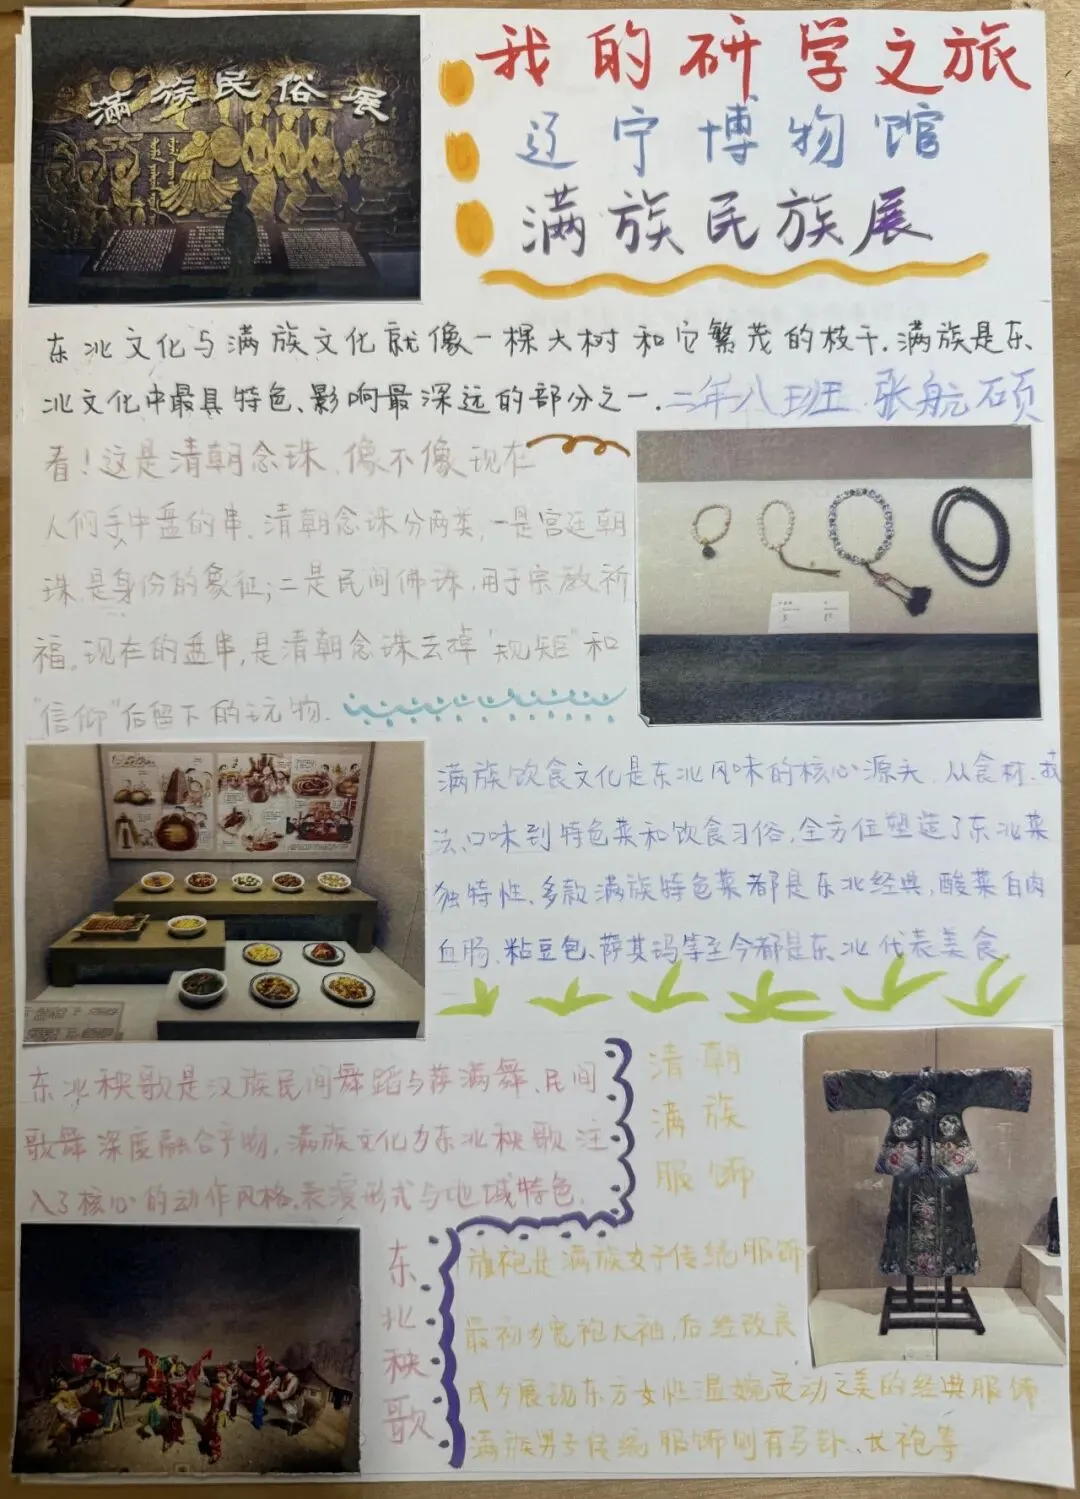 满族民俗展
我的研学之旅
辽宁博物馆
满族民族展
东北文化与满族文化就像一棵大树和它繁茂的枝干.满族是东
北文化中最具特色、影响最深远的部分之一.二年八班 张航硕
看!这是清朝念珠,像不像现在
人们手中盘的串.清朝念珠分两类,一是宫廷朝
珠,是身份的象征;二是民间佛珠,用于宗教祈
福。现在的盘串,是清朝念珠去掉"规矩"和
"信仰"后留下的玩物.
满族饮食文化是东北风味的核心源头,从食材、技
法、口味到特色菜和饮食习俗,全方位塑造了东北菜
独特性、多款满族特色菜都是东北经典,酸菜白肉
血肠、粘豆包、萨其玛等至今都是东北代表美食
东北秧歌是汉族民间舞蹈与萨满舞、民间
歌舞深度融合产物,满族文化为东北秧歌注
入了核心的动作风格、表演形式与地域特色.
东北秧歌
清朝
满族
服饰
旗袍是满族女子传统服饰
最初为宽袍大袖,后经改良
成为展现东方女性温婉灵动之美的经典服饰
满族男子传统服饰则有马卦、长袍等